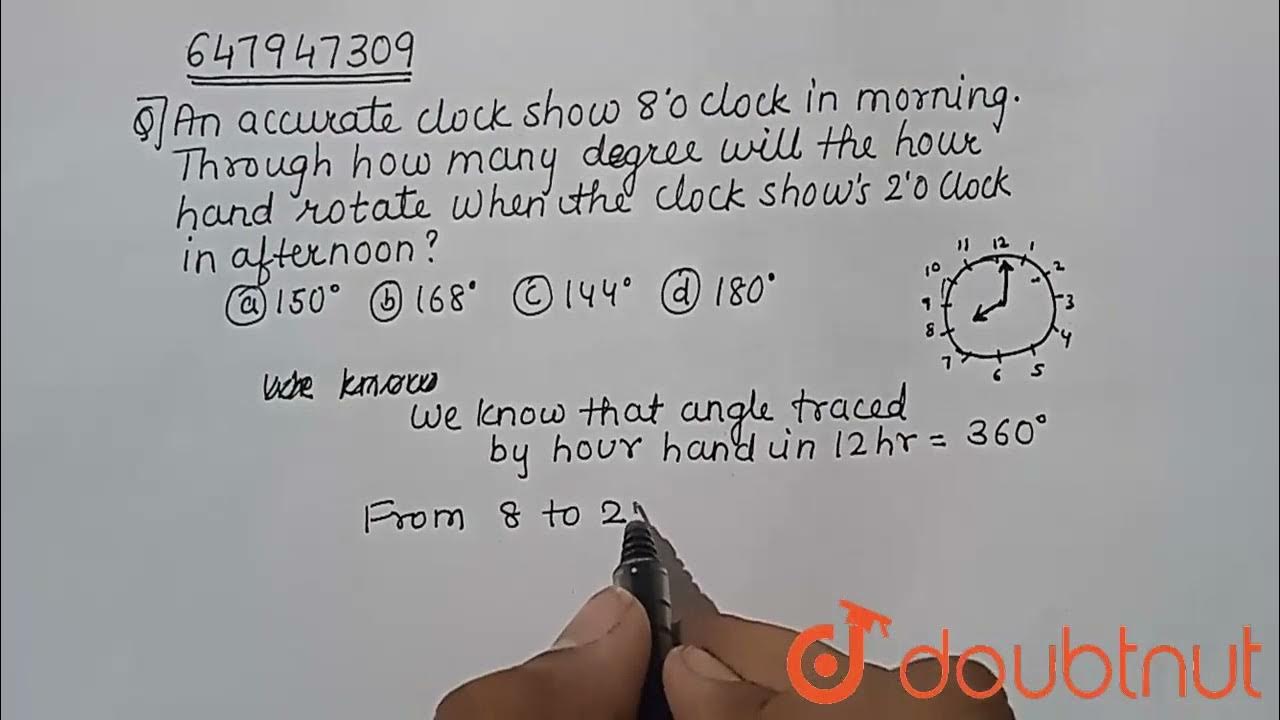 647947309
Q] An accurate clock show 8'o clock in morning.
Through how many degree will the hour
hand rotate when the clock show's 2'o clock
in afternoon?
ⓐ 150° ⓑ 168° ⓒ 144° ⓓ 180°
11 12 1
10 2
9 3
8 4
7 6 5
we know
we know that angle traced
by hour hand in 12hr = 360°
From 8 to 2
doubtnut